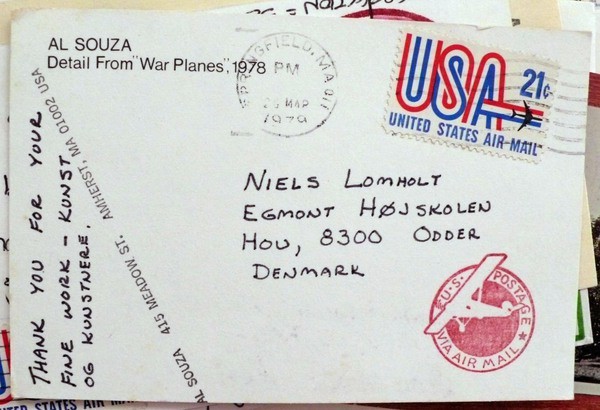 AL SOUZA
Detail From "War Planes", 1978
SPRINGFIELD, MA 011
PM
26 MAR
1979
USA 21c
UNITED STATES AIR MAIL
NIELS LOMHOLT
EGMONT HØJSKOLEN
HOU, 8300 ODDER
DENMARK
U.S. POSTAGE
VIA AIR MAIL
THANK YOU FOR YOUR
FINE WORK – KUNST
OG KUNSTNERE.
AL SOUZA 415 MEADOW ST. AMHERST, MA 01002 USA
UNITED STATES AIR MAIL